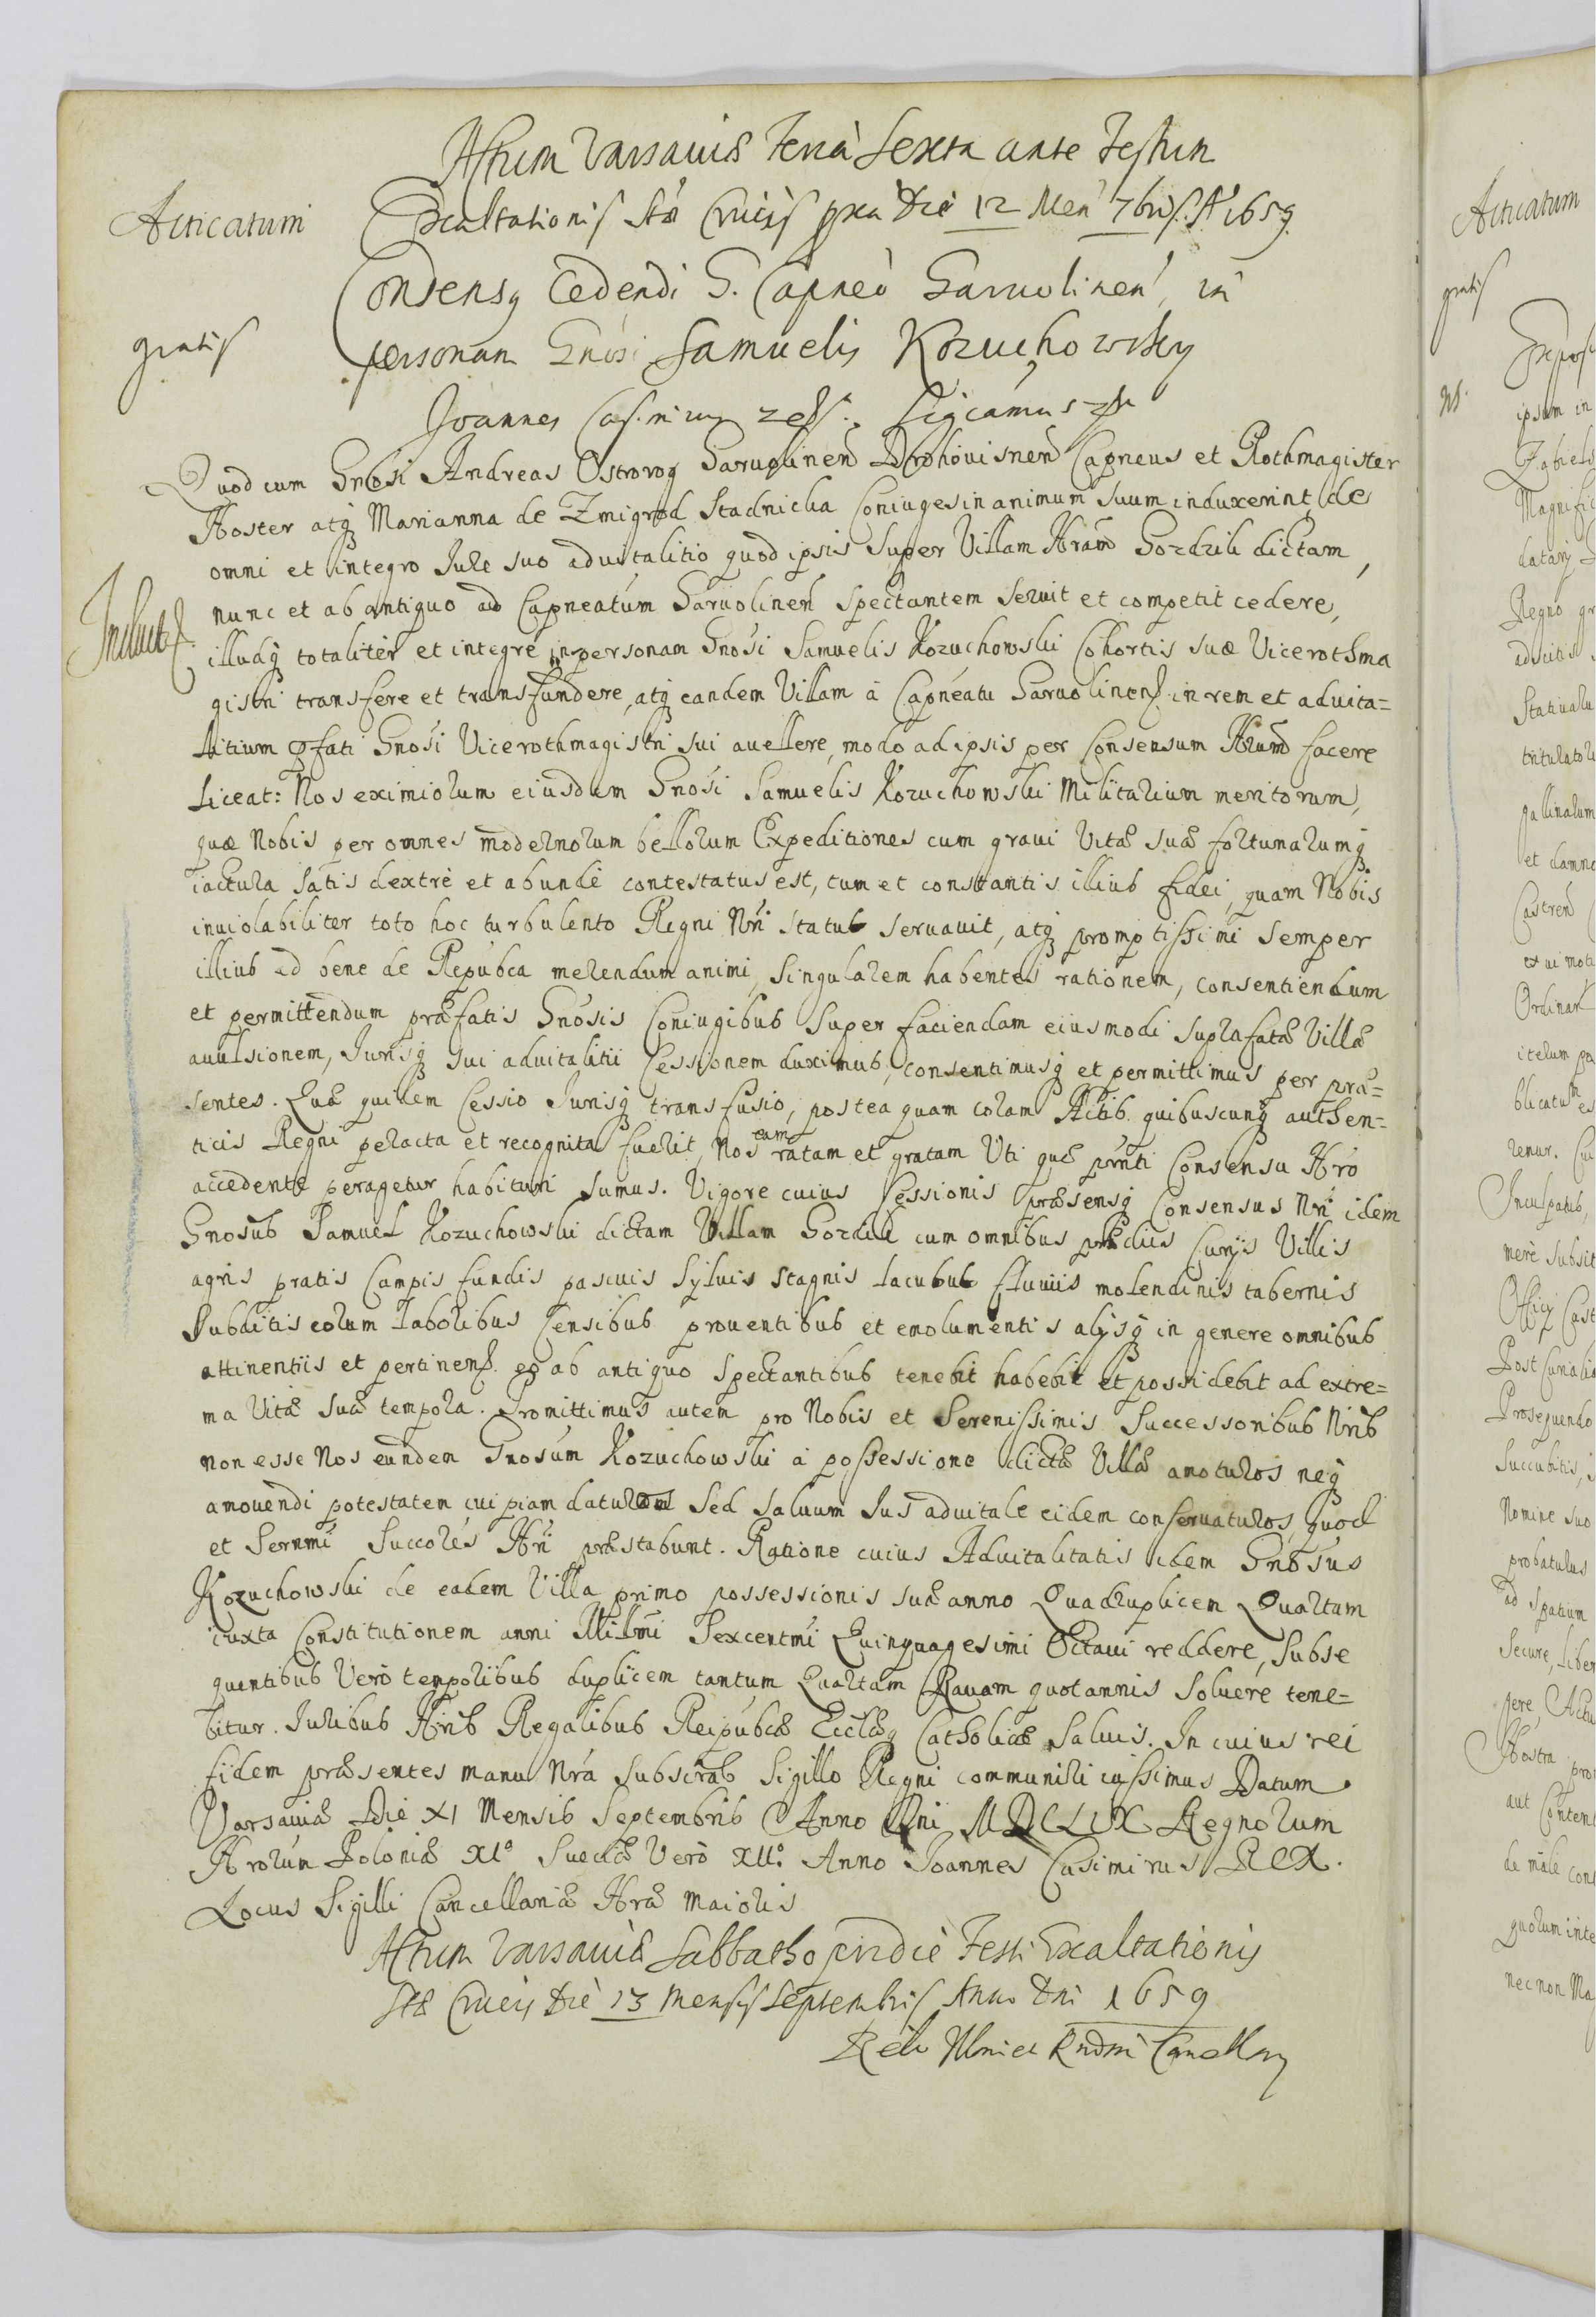 Actum Varsaviæ Feria Sexta ante Festum
Acticatum
Exaltationis Stæ Crucis pxa Die 12 Men 7bris A 1659
Consensq Cedendi G. Capneo Garuolinen, in
gratis
personam Gnosi Samuelis Kozuchowsky
Joannes Casimirus Rex. Sigcamus
Quod cum Gnosi Andreas Ostrorog Garuolinen Drohouisnen Capneus et Rothmagister
Noster atq Marianna de Zmigrod Stadnicka Coniuges in animum suum induxerint, de
omni et integro Jure suo aduitalitio quod ipsis super Villam Nram Gozdzik dictam,
nunc et ab antiquo ad Capneatum Garuolinen spectantem seruit et competit cedere,
Induct
illudq totaliter et integre in personam Gnosi Samuelis Kozuchowski Cohortis suæ Vicerothma
gistri transfere et transfundere, atq eandem Villam à Capneatu Garuolinens. in rem et aduita=
litium pfati Gnosi Vicerothmagistri sui auellere, modo ad ipsis per Consensum Nrum facere
Liceat: Nos eximiorum eiusdem Gnosi Samuelis Kozuchowski Militarium meritorum,
quæ Nobis per omnes modernorum bellorum Expeditiones cum graui Vitæ suæ fortunarumq
iactura satis dextrè et abundè contestatus est, tum et constantis illius fidei, quam Nobis
inuiolabiliter toto hoc turbulento Regni Nri statu seruauit, atq promptissimi semper
illius ad bene de Repubca merendum animi, singularem habentes rationem, consentiendum
et permittendum præfatis Gnosis Coniugibus super faciendam eiusmodi suprafatæ Villæ
auulsionem, Jurisq sui aduitalitii Cessionem duximus, consentimusq et permittimus per præ=
sentes. Quæ quidem Cessio Jurisq transfusio, postea quam coram Actib. quibuscunq authen=
ticis Regni peracta et recognita fuerit, Nos eam ratam et gratam Uti quæ prnti Consensu Nro
accedente peragetur habituri sumus. Vigore cuius Cessionis præsensq Consensus Nri idem
Gnosus Samuel Kozuchowski dictam Villam Gozdzik cum omnibus prædiis Curiis Villis
agris pratis Campis fundis pascuis syluis stagnis lacubus fluuiis molendinis tabernis
Subditis eorum laboribus Censibus prouentibus et emolumentis alijsq in genere omnibus
attinentiis et pertinens. eo ab antiquo spectantibus tenebit habebit et possidebit ad extre=
ma Vitæ suæ tempora. Promittimus autem pro Nobis et Serenissimis Successoribus Nrib
non esse Nos eundem Gnosum Kozuchowski à possessione dictæ Villæ amoturos neq
amouendi potestatem cuipiam daturos Sed saluum Jus aduitale eidem conseruaturos, quod
et Sernmi Succores Nri præstabunt. Ratione cuius Aduitalitatis idem Gnosus
Kozuchowski de eadem Villa primo possessionis suæ anno Quadruplicem Quartam
iuxta Constitutionem anni Millmi Sexcentmi Quinquagesimi Octaui reddere, Subse
quentibus Verò temporibus duplicem tantum Quartam Rauam quotannis soluere tene=
bitur. Juribus Nrib Regalibus Reipubcæ Ecclæq Catholicæ Saluis. In cuius rei
fidem præsentes manu Nra subscrab Sigillo Regni communiri iussimus Datum
Varsauiæ Die XI Mensis Septembris Anno Dni MDCLIX Regnorum
Nrorum Poloniæ XIº Sueciæ Verò XIIº. Anno Joannes Casimirus REX.
Locus Sigilli Cancellariæ Nræ Maioris
Actum Varsaviæ Sabbatho pridie Festi Exaltationis
Stæ Crucis Die 13 Mensis Septembris Anno Dni 1659
Relo Illmi et Rndmi Cancellary
Acticatum
gratis
ipsum in
Magnific
datarij
Regno gr
adscitis
Statiualu
tritulatoru
gallinalum
et damno
Castren
ex ui moti
Ordinar
iterum pa
blicatum es
renur. Cui
Inculpatus,
mere subsit
Officij Cast
Post Curialia
Prosequendo
Succubitis,
Nomine suo
probaturus
ad spatium
Secure, liber
pere, Actu
Nostra pro
aut Content
de male cons
quorum inte
nec non Ma